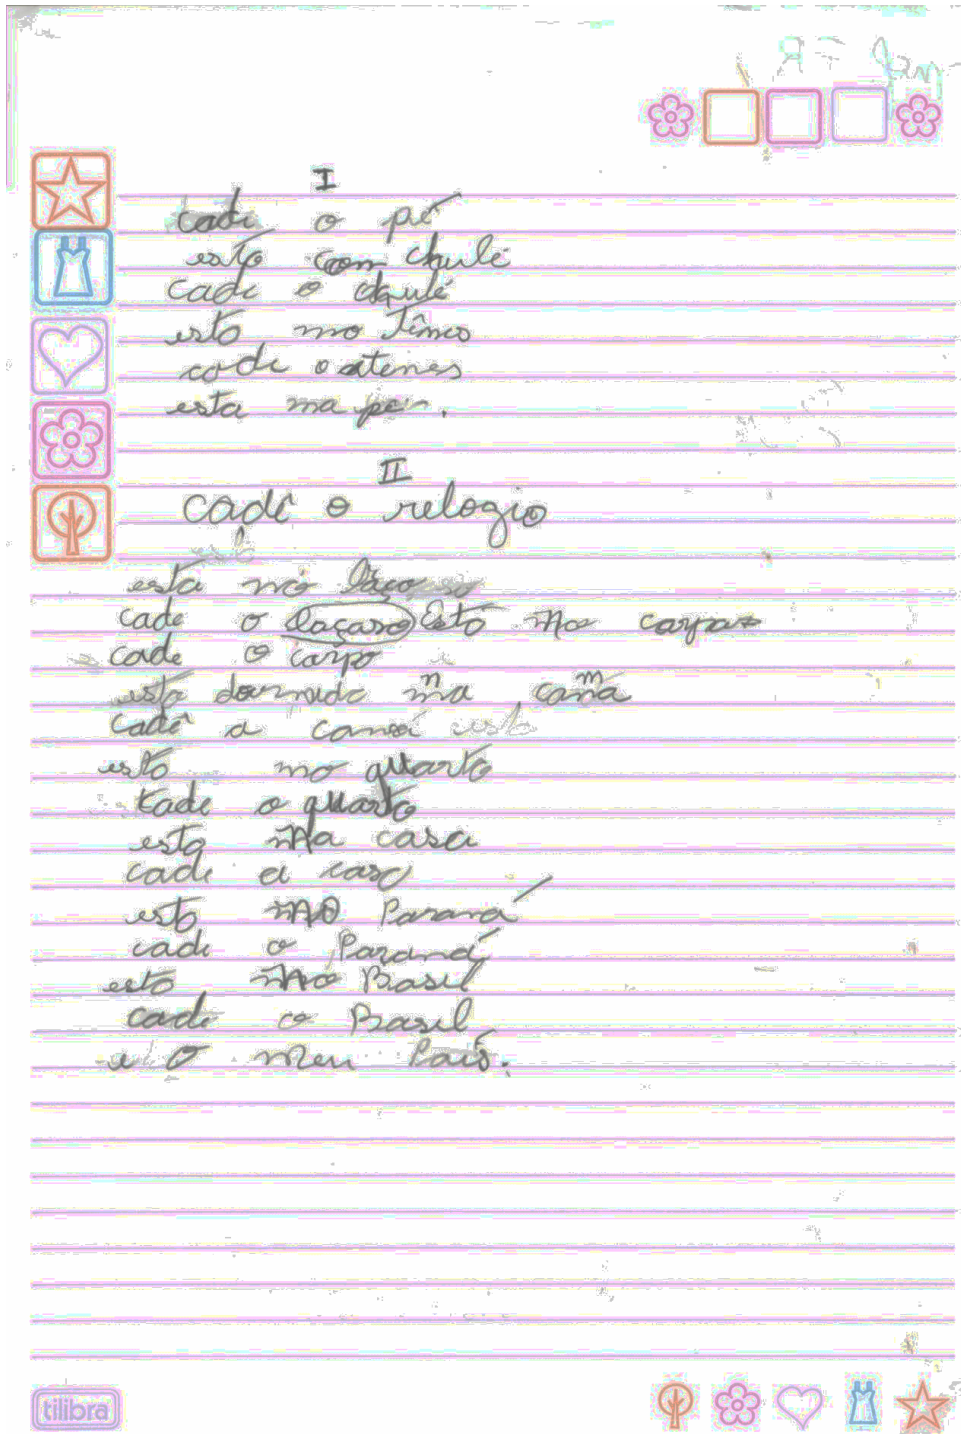 I
cadê o pé
esto com chulé
cadê o chulé
esto no Tênes
cade o atenes
esta na pé.
II
cadê o relogio
está no
cade o laçaso Esto Na carpo
cade o carpo
esto dormido na cama
cadê a cama esto
esto no quarto
cade o quarto
esto Na casa
cade a casa
esto NO Paraná
cade o Paraná
esto No Basil
cade o Basil
e o meu Pais.
tilibra